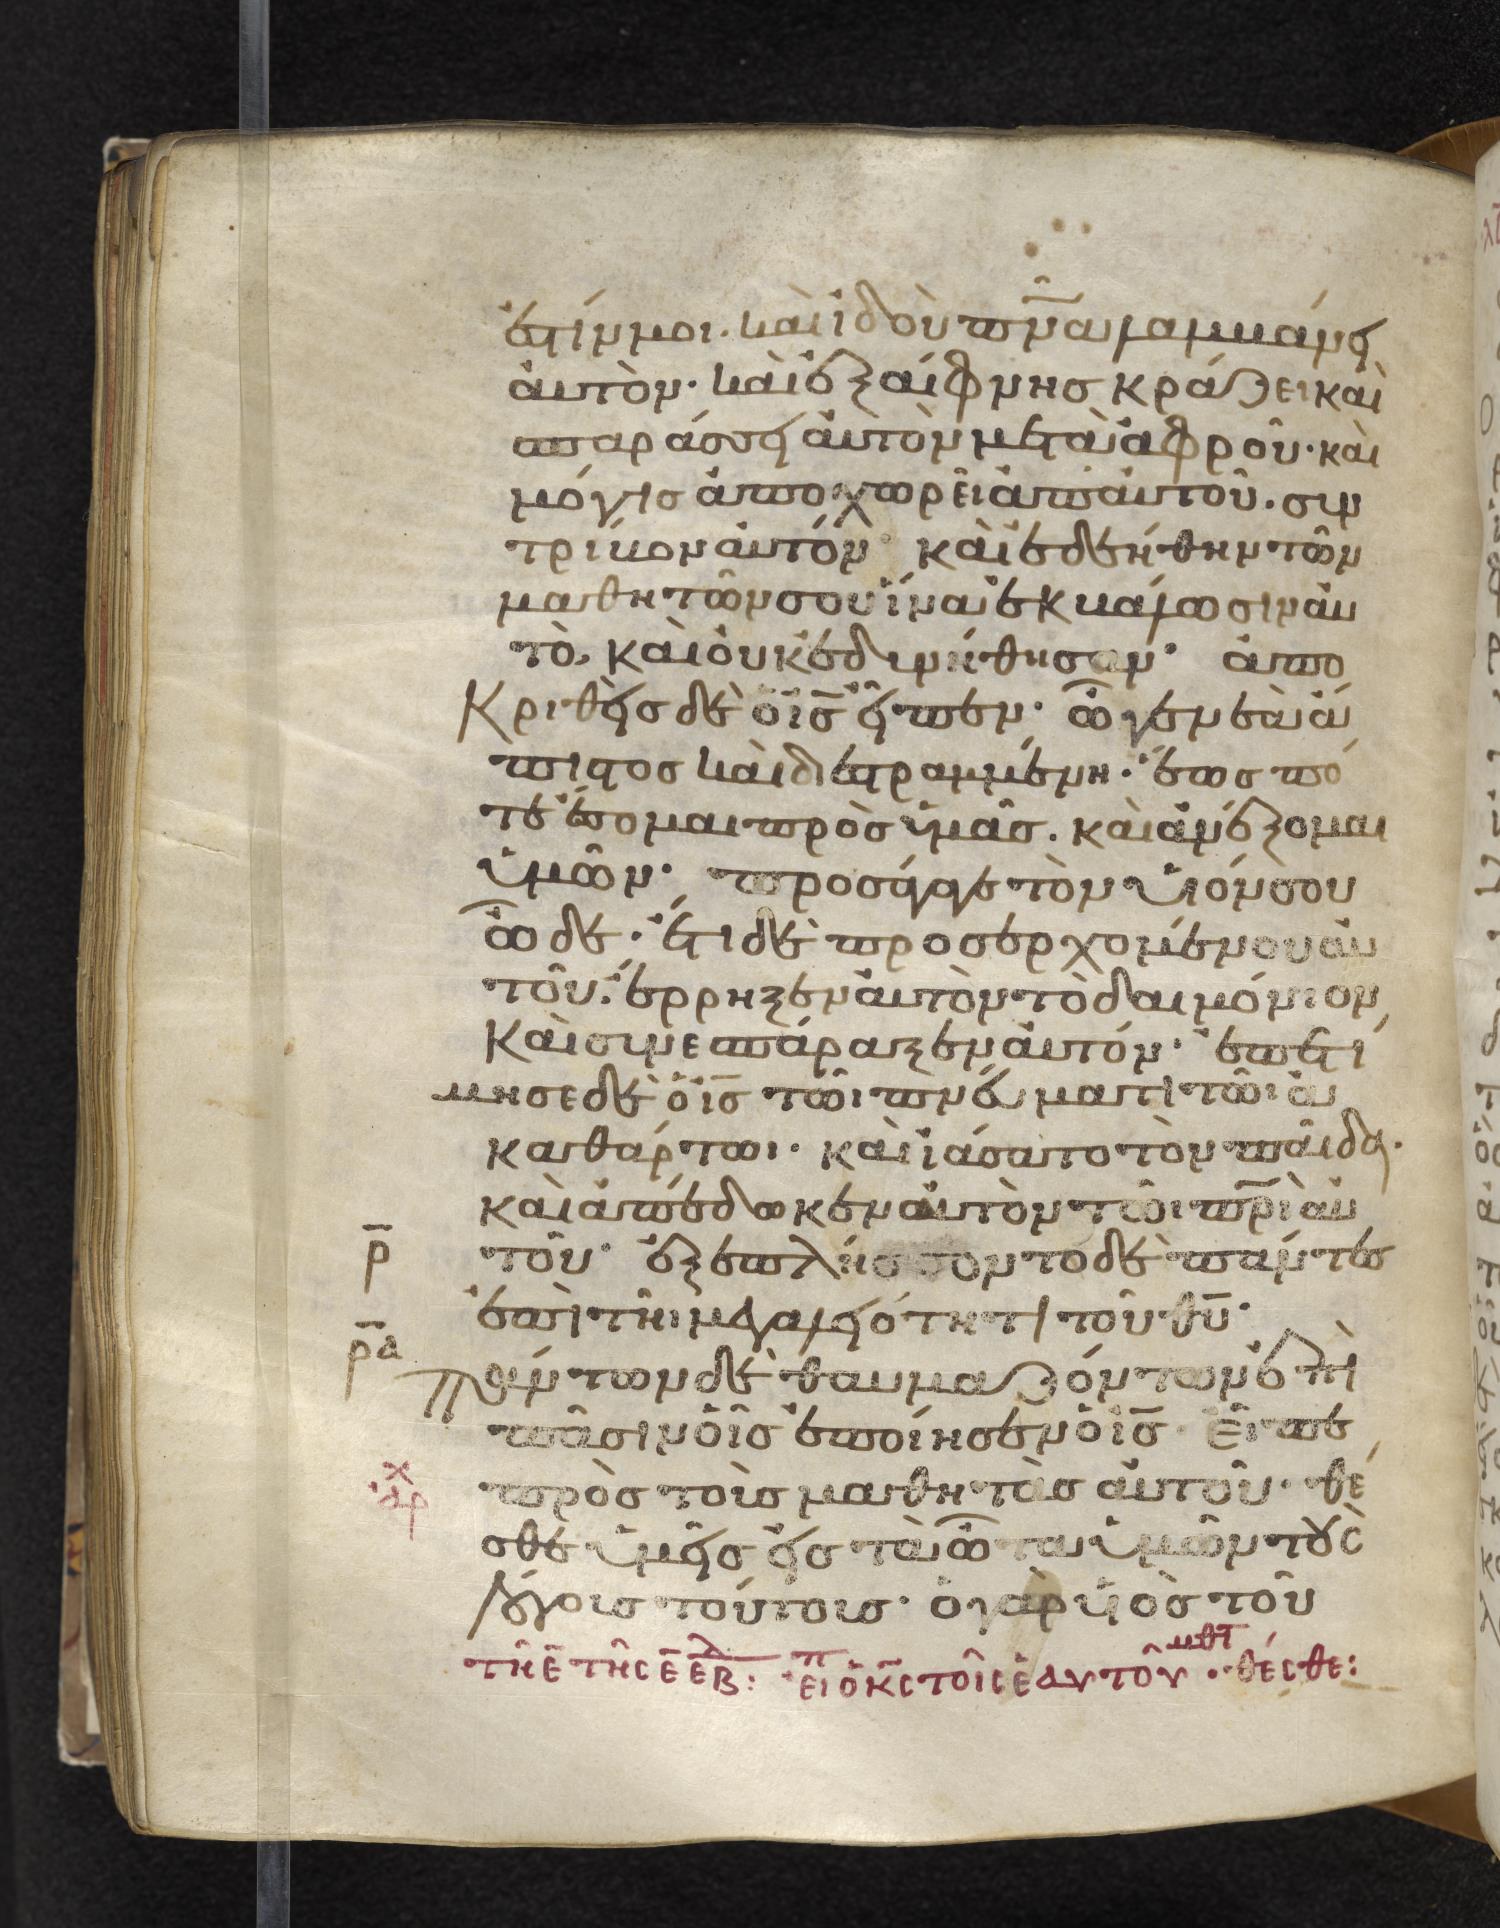 ἐστίν μοι. καὶ ἰδοὺ πν̅α λαμβάνει
αὐτὸν· καὶ ἐξαίφνης κράζει καὶ
σπαράσσει αὐτὸν μετὰ ἀφροῦ· καὶ
μόγις ἀποχωρεῖ ἀπ αὐτοῦ. συν
τρίβον αὐτόν· καὶ ἐδεήθην τῶν
μαθητῶν σου ἵνα ἐκβάλωσιν αὐ
τὸ, καὶ οὐκ ἐδυνήθησαν· ἀπο
Κριθεὶς δὲ ὁ ις̅ εἶπεν· ὦ γενεὰ ἄ
πιστος καὶ διεστραμμένη· ἕως πό
τε ἔσομαι πρὸς ὑμᾶς. καὶ ἀνέξομαι
ὑμῶν· προσάγαγε τὸν υἱόν σου
ὧδε· ἔτι δὲ προσερχομένου αὐ
τοῦ. ἔρρηξεν αὐτὸν τὸ δαιμόνιον
καὶ συνεσπάραξεν αὐτόν· ἐπετί
μησε δὲ ὁ ις̅ τῶι πνεύματι τῶι ἀ
καθάρτωι· καὶ ἰάσατο τὸν παῖδα·
καὶ ἀπέδωκεν αὐτὸν τῶι πρ̅ι αὐ
ρ̅ τοῦ· ἐξεπλήσσοντο δὲ πάντες
ἐπὶ τῆι μεγαλειότητι τοῦ θυ̅·
ρ̅α Πάντων δὲ θαυμαζόντων ἐπὶ
πᾶσιν οἷς ἐποίησεν ὁ ις̅ εἶπε
ἀρχ πρὸς τοὺς μαθητὰς αὐτοῦ· θέ
σθε ὑμεῖς εἰς τὰ ὦτα ὑμῶν τοὺς
λόγους τούτους· ὁ γὰρ υἱὸς τοῦ
τῆ ε̅ τῆς ε̅ ἑβ̅δ: εἶπ ὁ κ̅ς τοῖς ἑαυτοῦ μθτ· θέσθε: